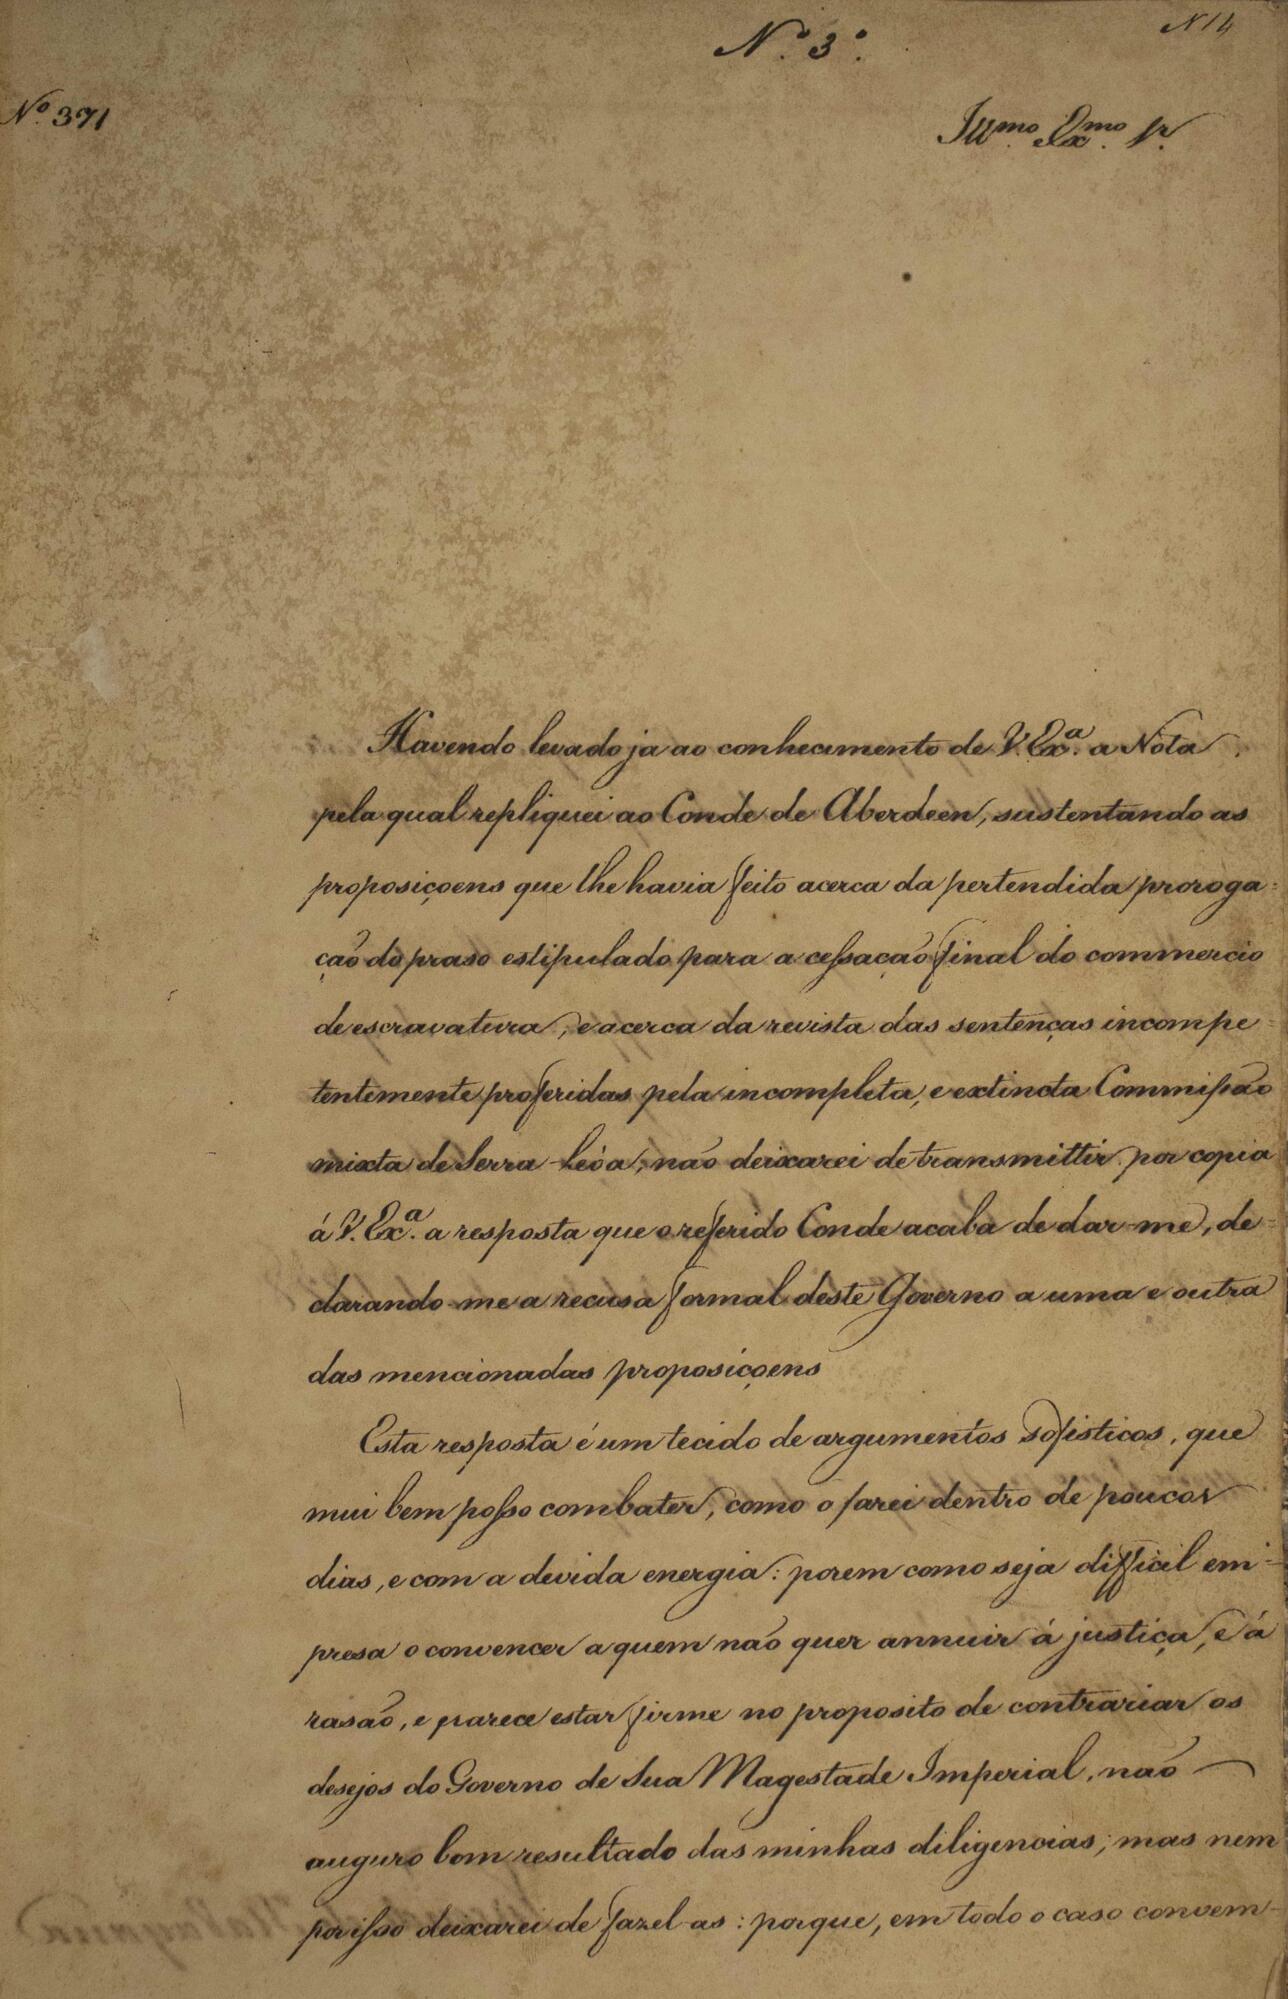 N.º 3.º
N 14
N.º 371
Ill.mo Ex.mo Sr.
Havendo levado ja ao conhecimento de V. Ex.ª a Nota
pela qual repliquei ao Conde de Aberdeen, sustentando as
proposiçoens que lhe havia feito acerca da pertendida proroga=
ção do praso estipulado para a cessação final do commercio
de escravatura, e acerca da revista das sentenças incompe=
tentemente proferidas pela incompleta, e extincta Commissão
mixta de Serra-Leôa, não deixarei de transmittir por copia
á V. Ex.ª a resposta que o referido Conde acaba de dar-me, de=
clarando-me a recusa formal deste Governo a uma e outra
das mencionadas proposiçoens
Esta resposta é um tecido de argumentos sofisticos, que
mui bem posso combater, como o farei dentro de poucos
dias, e com a devida energia: porem como seja difficil em=
presa o convencer a quem não quer annuir á justiça, e á
rasão, e parece estar firme no proposito de contrariar os
desejos do Governo de Sua Magestade Imperial, não
auguro bom resultado das minhas diligencias; mas nem
por isso deixarei de fazel-as: porque, em todo o caso convem-